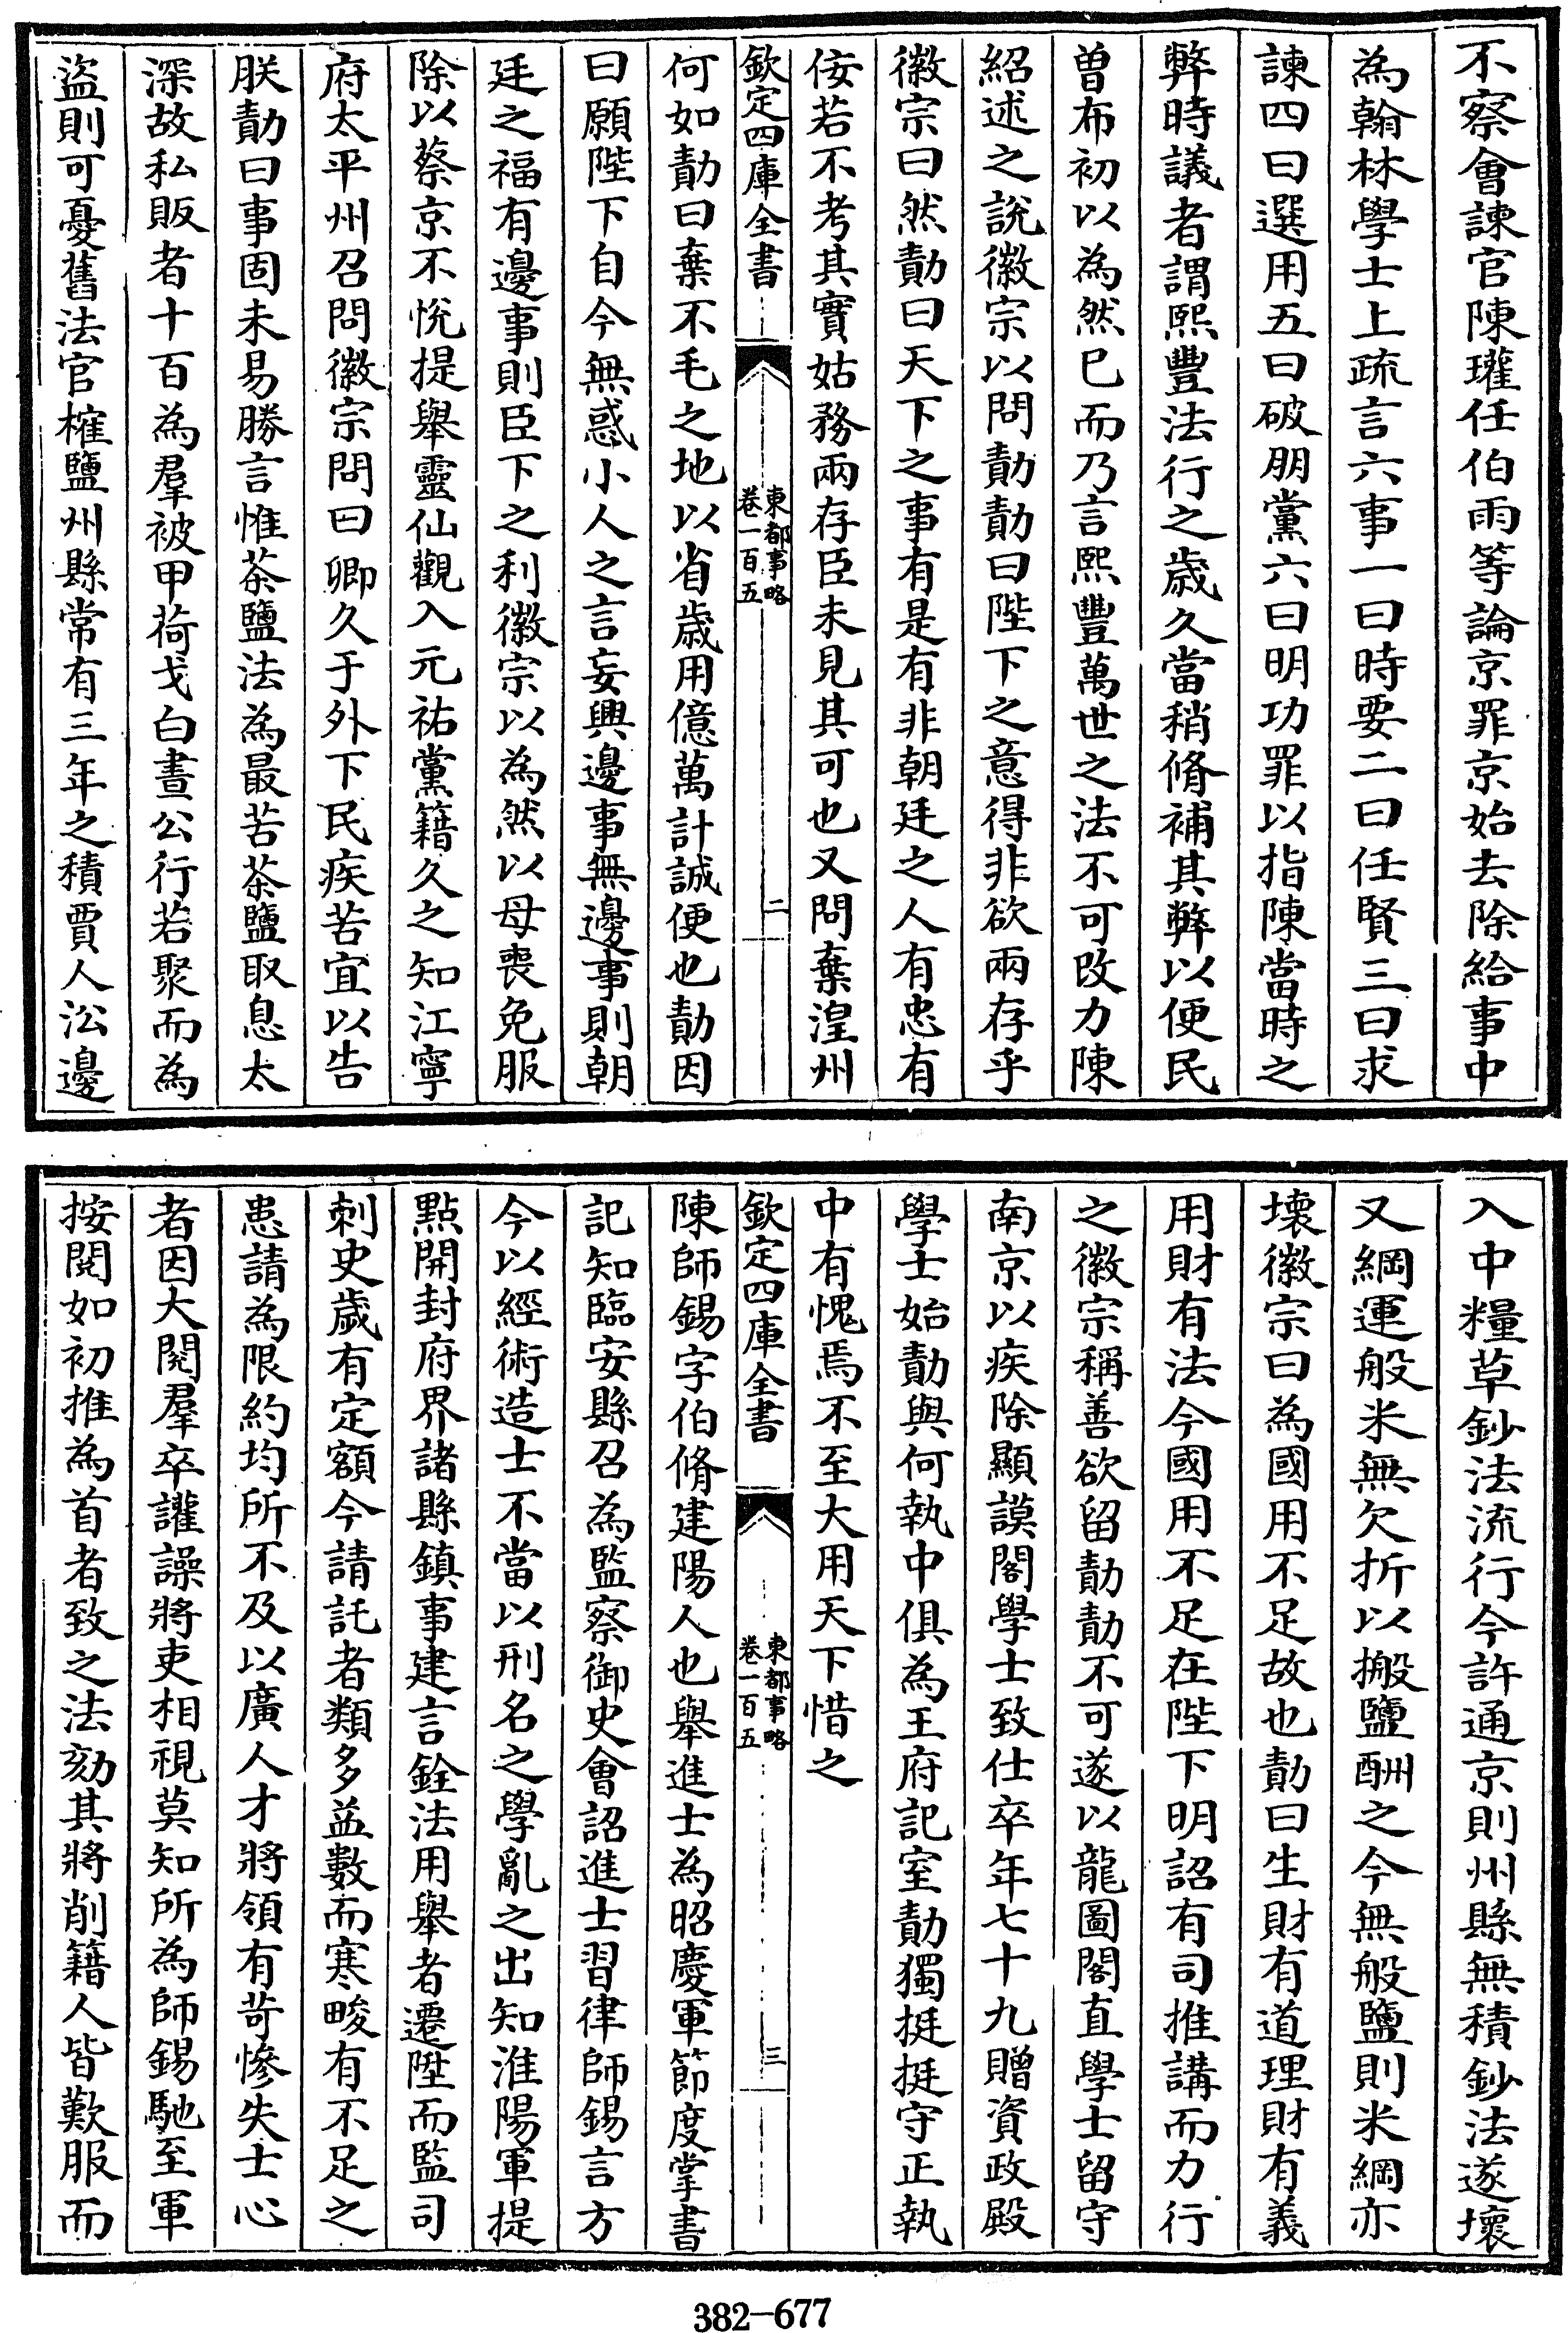 不察會諫官陳瓘任伯雨等論京罪京始去除給事中
為翰林學士上疏言六事一曰時要二曰任賢三曰求
諫四曰選用五曰破朋黨六曰明功罪以指陳當時之
弊時議者謂熙豐法行之歲久當稍脩補其弊以便民
曾布初以為然已而乃言熙豐萬世之法不可改力陳
紹述之說徽宗以問勣勣曰陛下之意得非欲兩存乎
徽宗曰然勣曰天下之事有是有非朝廷之人有忠有
佞若不考其實姑務兩存臣未見其可也又問棄湟州
欽定四庫全書
東都事略
卷一百五
二
何如勣曰棄不毛之地以省歲用億萬計誠便也勣因
曰願陛下自今無惑小人之言妄興邊事無邊事則朝
廷之福有邊事則臣下之利徽宗以為然以母喪免服
除以蔡京不悅提舉靈仙觀入元祐黨籍久之知江寧
府太平州召問徽宗問曰卿久于外下民疾苦宜以告
朕勣曰事固未易勝言惟茶鹽法為最苦茶鹽取息太
深故私販者十百為羣被甲荷戈白晝公行若聚而為
盜則可憂舊法官榷鹽州縣常有三年之積賈人㳂邊
入中糧草鈔法流行今許通京則州縣無積鈔法遂壞
又綱運般米無欠折以搬鹽酬之今無般鹽則米綱亦
壞徽宗曰為國用不足故也勣曰生財有道理財有義
用財有法今國用不足在陛下明詔有司推講而力行
之徽宗稱善欲留勣勣不可遂以龍圖閣直學士留守
南京以疾除顯謨閣學士致仕卒年七十九贈資政殿
學士始勣與何執中俱為王府記室勣獨挺挺守正執
中有愧焉不至大用天下惜之
欽定四庫全書
東都事略
卷一百五
三
陳師錫字伯脩建陽人也舉進士為昭慶軍節度掌書
記知臨安縣召為監察御史會詔進士習律師錫言方
今以經術造士不當以刑名之學亂之出知淮陽軍提
點開封府界諸縣鎮事建言銓法用舉者遷陞而監司
刺史歲有定額今請託者類多益數而寒畯有不足之
患請為限約均所不及以廣人才將領有苛慘失士心
者因大閱羣卒讙譟將吏相視莫知所為師錫馳至軍
按閱如初推為首者致之法劾其將削籍人皆歎服而
382-677